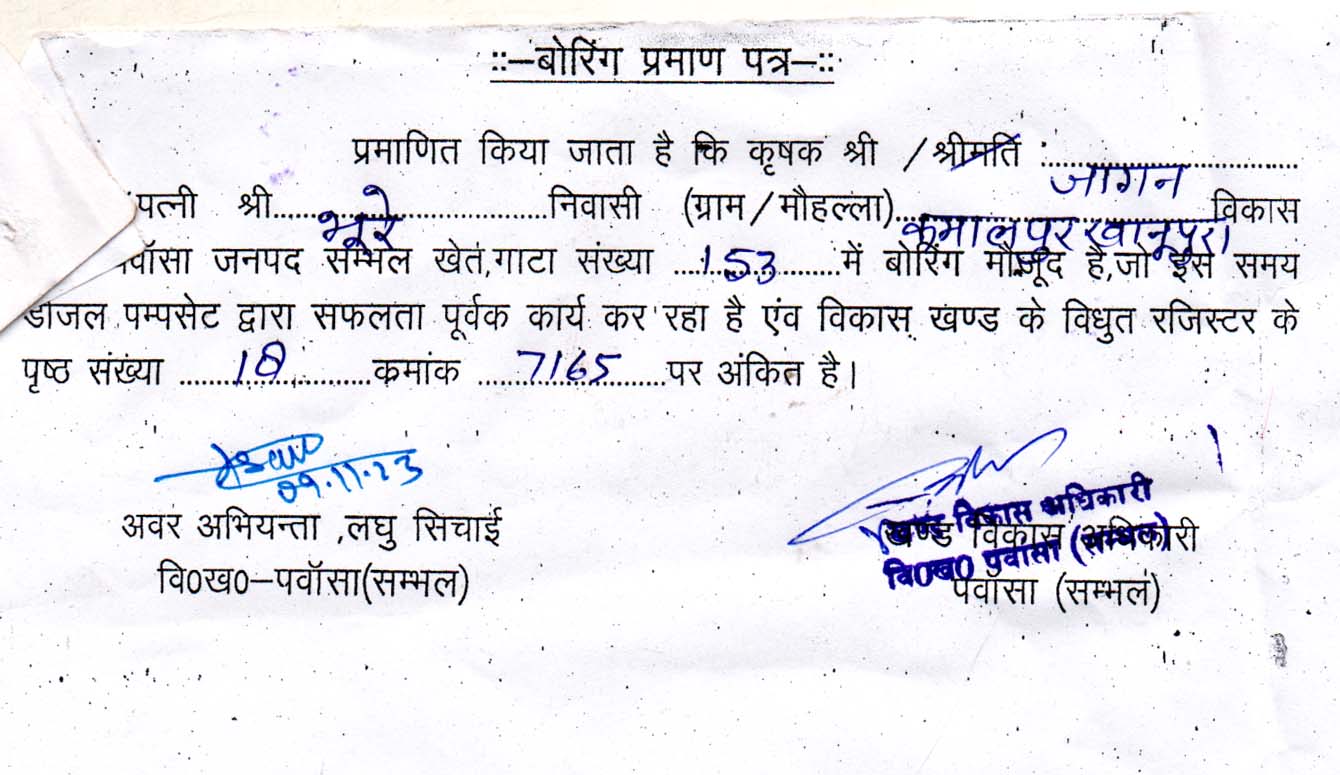 ::–बोरिंग प्रमाण पत्र–::
प्रमाणित किया जाता है कि कृषक श्री / श्रीमति :.......जागन.......
पत्नी श्री.......भूरे.......निवासी (ग्राम/मौहल्ला).......कमालपुर खानूपुरा.......विकास
वॉसा जनपद सम्भल खेत,गाटा संख्या .......153.......में बोरिंग मौजूद है,जो इस समय
डीजल पम्पसेट द्वारा सफलता पूर्वक कार्य कर रहा है एंव विकास खण्ड के विधुत रजिस्टर के
पृष्ठ संख्या .......18.......कमांक .......7165.......पर अंकित है।
09.11.23
अवर अभियन्ता ,लघु सिचाई
वि0ख0–पवॉसा(सम्भल)
खण्ड विकास अधिकारी
वि0ख0 पवांसा (सम्भल)
खण्ड विकास अधिकारी
पवॉसा (सम्भल)